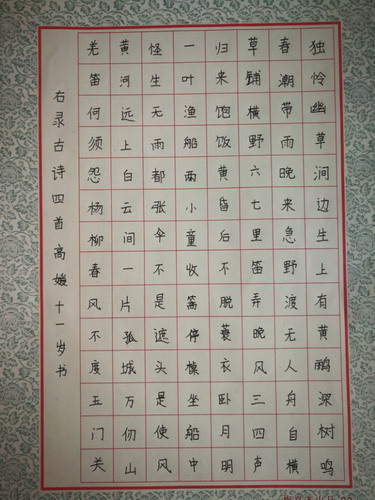 独怜幽草涧边生上有黄鹂深树鸣
春潮带雨晚来急野渡无人舟自横
草铺横野六七里笛弄晚风三四声
归来饱饭黄昏后不脱蓑衣卧月明
一叶渔船两小童收篙停棹坐船中
怪生无雨都张伞不是遮头是使风
黄河远上白云间一片孤城万仞山
羌笛何须怨杨柳春风不度玉门关
右录古诗四首高媛十一岁书